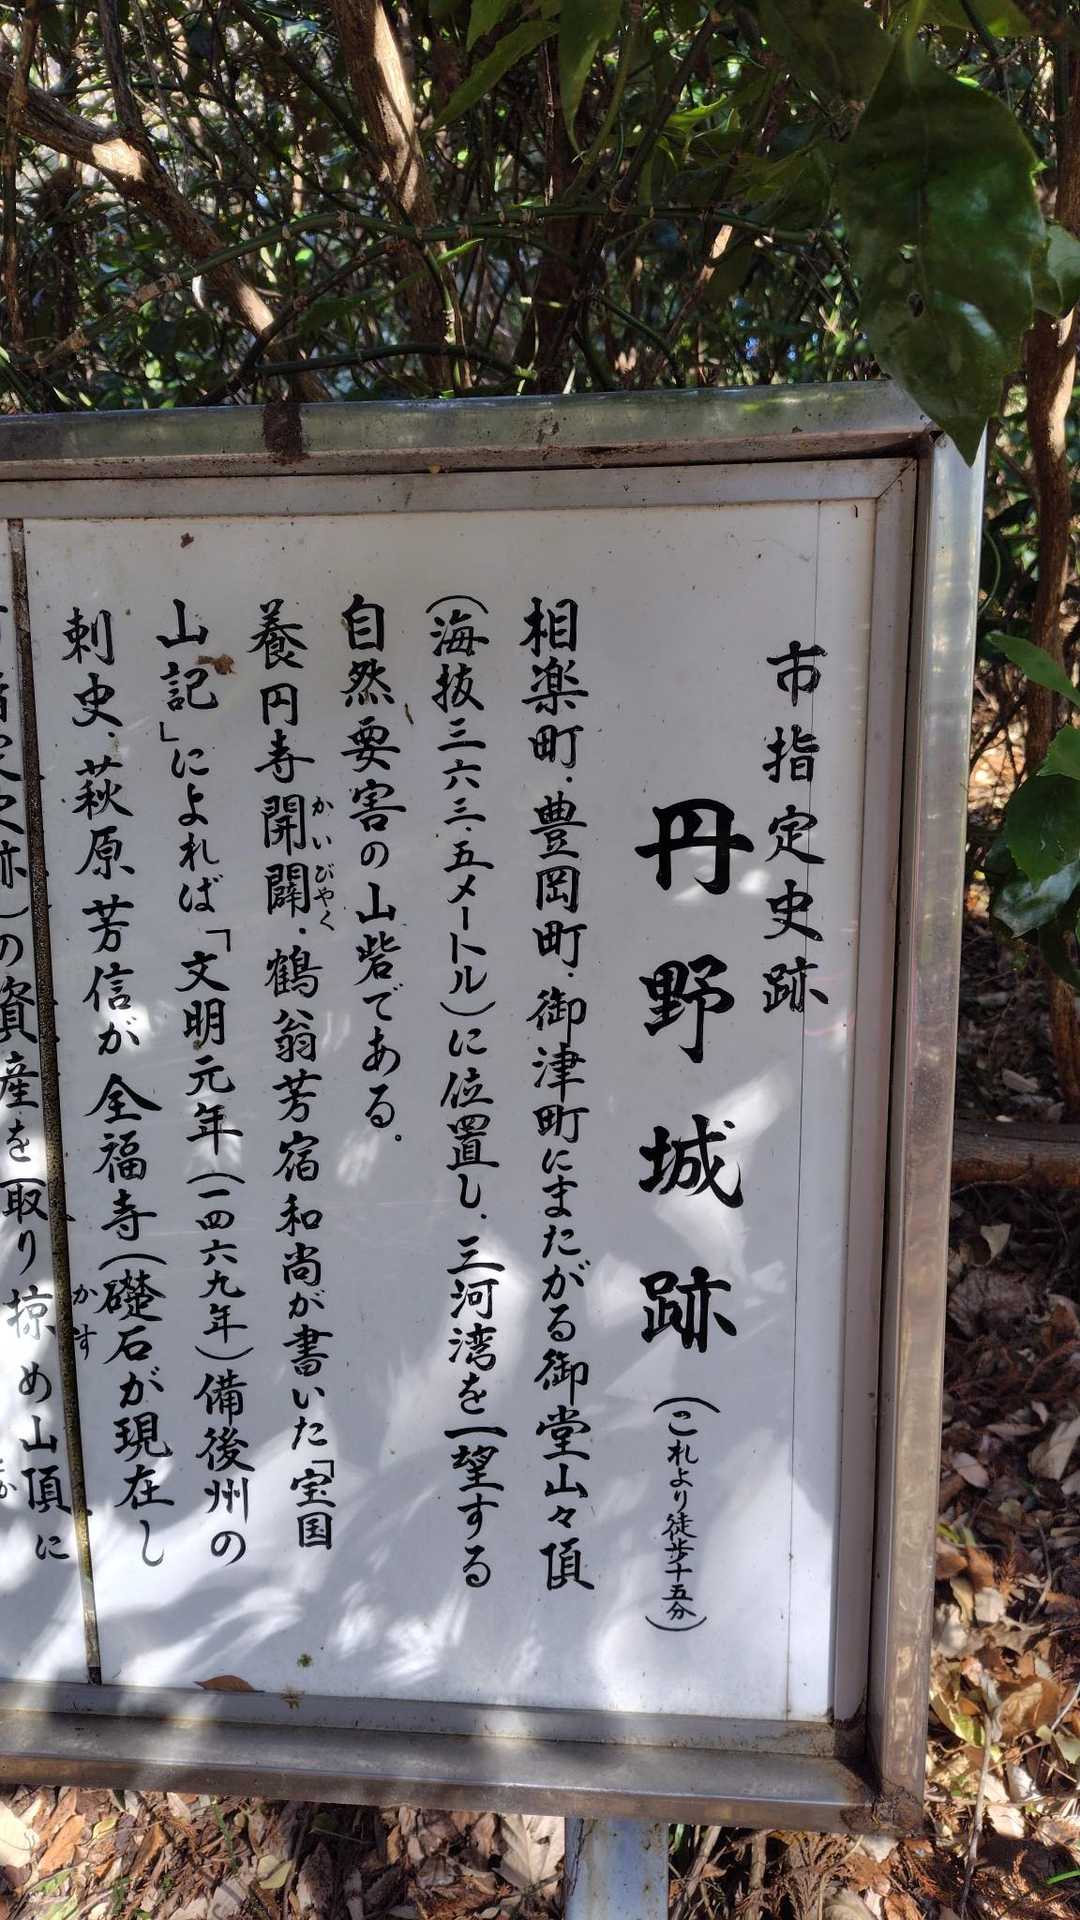 市指定史跡
丹野城跡(これより徒歩十五分)
相楽町.豊岡町.御津町にまたがる御堂山々頂
(海抜三六三.五メートル)に位置し.三河湾を一望する
自然要害の山砦である。
養円寺開闢.鶴翁芳宿和尚が書いた「宝国
かいびやく
山記」によれば「文明元年(一四六九年)備後州の
刺史.萩原芳信が全福寺(礎石が現在し
の資産を取り掠め山頂に
かす